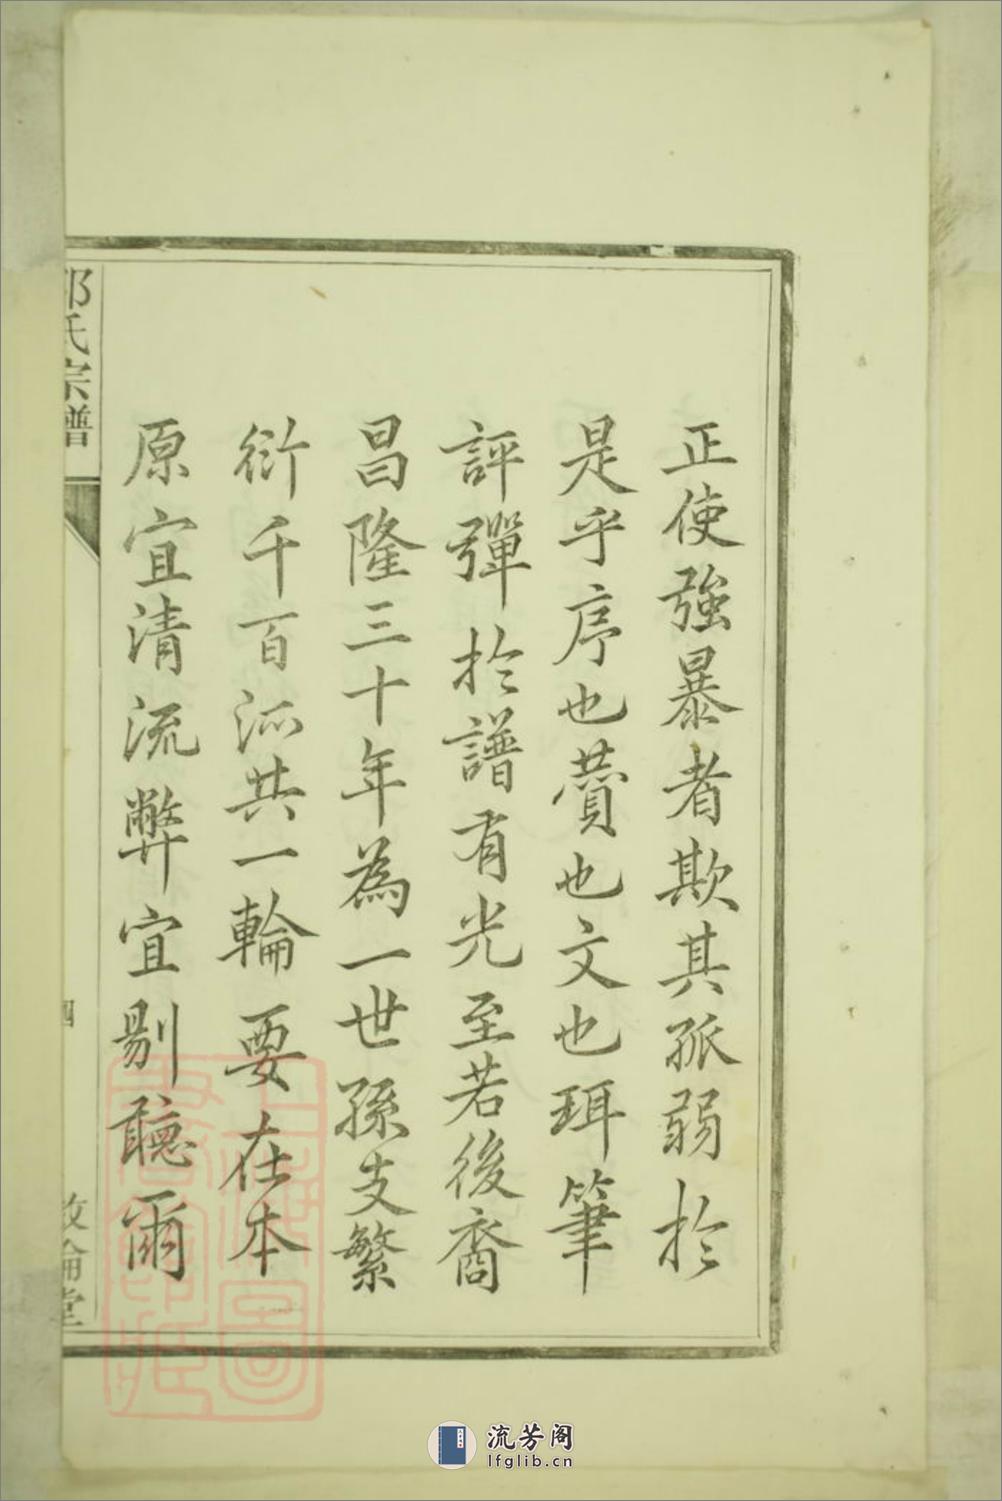 正使強暴者欺其孤弱於
是乎序也薲也文也珥筆
評彈於譜有光至若後裔
昌隆三十年為一世孫支繁
衍千百派共一輪要在本
原宜清流弊宜剔聽爾
氏宗譜
四
倫堂
流芳阁
lfglib.cn